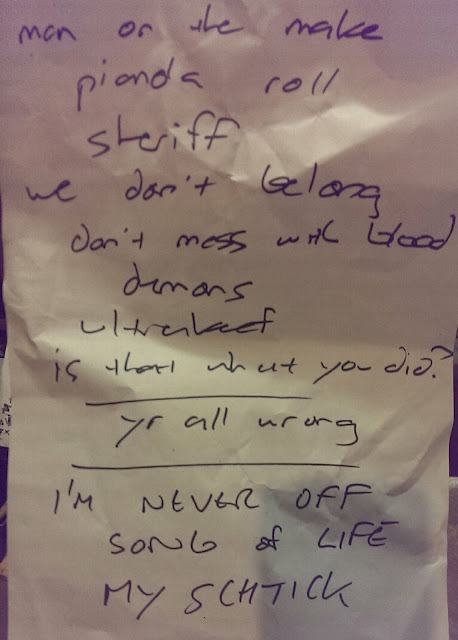 man on the make
pianda roll
sheriff
we don't belong
don't mess with blood
demons
ultrabeef
is that what you did?
yr all wrong
I'M NEVER OFF
SONG of LIFE
MY SCHTICK